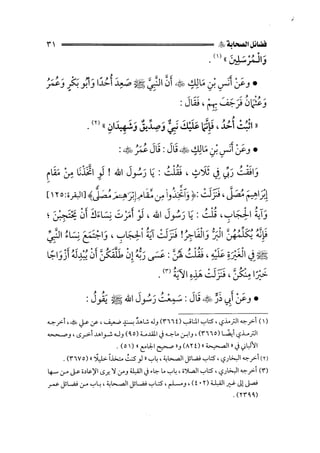 فضائل الصحابة ﷺ ٣١
وَالْمُرْسَلِينَ» (١).
• وعَنْ أَنَسِ بْنِ مَالِكٍ ﷺ، أَنَّ النَّبِيَّ ﷺ صَعِدَ أُحُدًا وَأَبُو بَكْرٍ وَعُمَرُ
وَعُثْمَانُ فَرَجَفَ بِهِمْ، فَقَالَ:
«اثْبُتْ أُحُدُ، فَإِنَّمَا عَلَيْكَ نَبِيٌّ وَصِدِّيقٌ وَشَهِيدَانِ» (٢).
• وعَنْ أَنَسِ بْنِ مَالِكٍ ﷺ قَالَ: قَالَ عُمَرُ ﷺ:
وَافَقْتُ رَبِّي فِي ثَلَاثٍ، فَقُلْتُ: يَا رَسُولَ الله! لَوِ اتَّخَذْنَا مِنْ مَقَامِ
إِبْرَاهِيمَ مُصَلًّى، فَنَزَلَتْ: ﴿وَاتَّخِذُوا مِن مَّقَامِ إِبْرَاهِيمَ مُصَلًّى﴾ [البقرة: ١٢٥]
وَآيَةُ الْحِجَابِ، قُلْتُ: يَا رَسُولَ الله، لَوْ أَمَرْتَ نِسَاءَكَ أَنْ يَحْتَجِبْنَ؛
فَإِنَّهُ يُكَلِّمُهُنَّ الْبَرُّ وَالْفَاجِرُ! فَنَزَلَتْ آيَةُ الْحِجَابِ، وَاجْتَمَعَ نِسَاءُ النَّبِيِّ
ﷺ فِي الْغَيْرَةِ عَلَيْهِ، فَقُلْتُ لَهُنَّ: عَسَى رَبُّهُ إِنْ طَلَّقَكُنَّ أَنْ يُبْدِلَهُ أَزْوَاجًا
خَيْرًا مِنْكُنَّ، فَنَزَلَتْ هَذِهِ الْآيَةُ (٣).
• وعَنْ أَبِي ذَرٍّ ﷺ قَالَ: سَمِعْتُ رَسُولَ الله ﷺ يَقُولُ:
(١) أخرجه الترمذي، كتاب المناقب (٣٦٦٤) وله شاهدٌ بسندٍ ضعيف، عن علي ﷺ، أخرجه
الترمذي أيضًا (٣٦٦٥)، وابن ماجه في المقدمة (٩٥) وله شواهد أخرى، وصححه
الألباني في «الصحيحة» (٨٢٤) و«صحيح الجامع» (٥١).
(٢) أخرجه البخاري، كتاب فضائل الصحابة، باب «لو كنتُ متخذًا خليلًا» (٣٦٧٥).
(٣) أخرجه البخاري، كتاب الصلاة، باب ما جاء في القبلة ومن لا يرى الإعادة على من سها
فصلى إلى غير القبلة (٤٠٢)، ومسلم، كتاب فضائل الصحابة، باب من فضائل عمر
(٢٣٩٩).